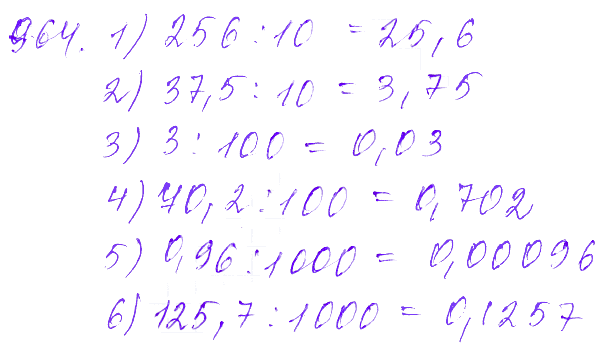 964. 1) 256 : 10 = 25,6
2) 37,5 : 10 = 3,75
3) 3 : 100 = 0,03
4) 70,2 : 100 = 0,702
5) 0,96 : 1000 = 0,00096
6) 125,7 : 1000 = 0,1257